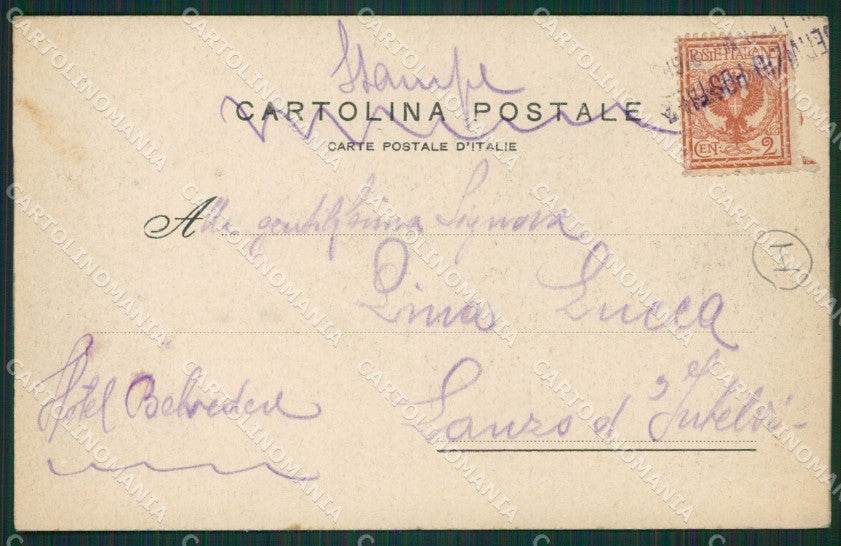 Stampe
CARTOLINA POSTALE
CARTE POSTALE D'ITALIE
POSTE ITALIANE
CEN. 2
Alla gentilissima Signora
Lina Lucca
Hotel Belvedere
Lanzo d'Intelvi
CARTOLINOMANIA